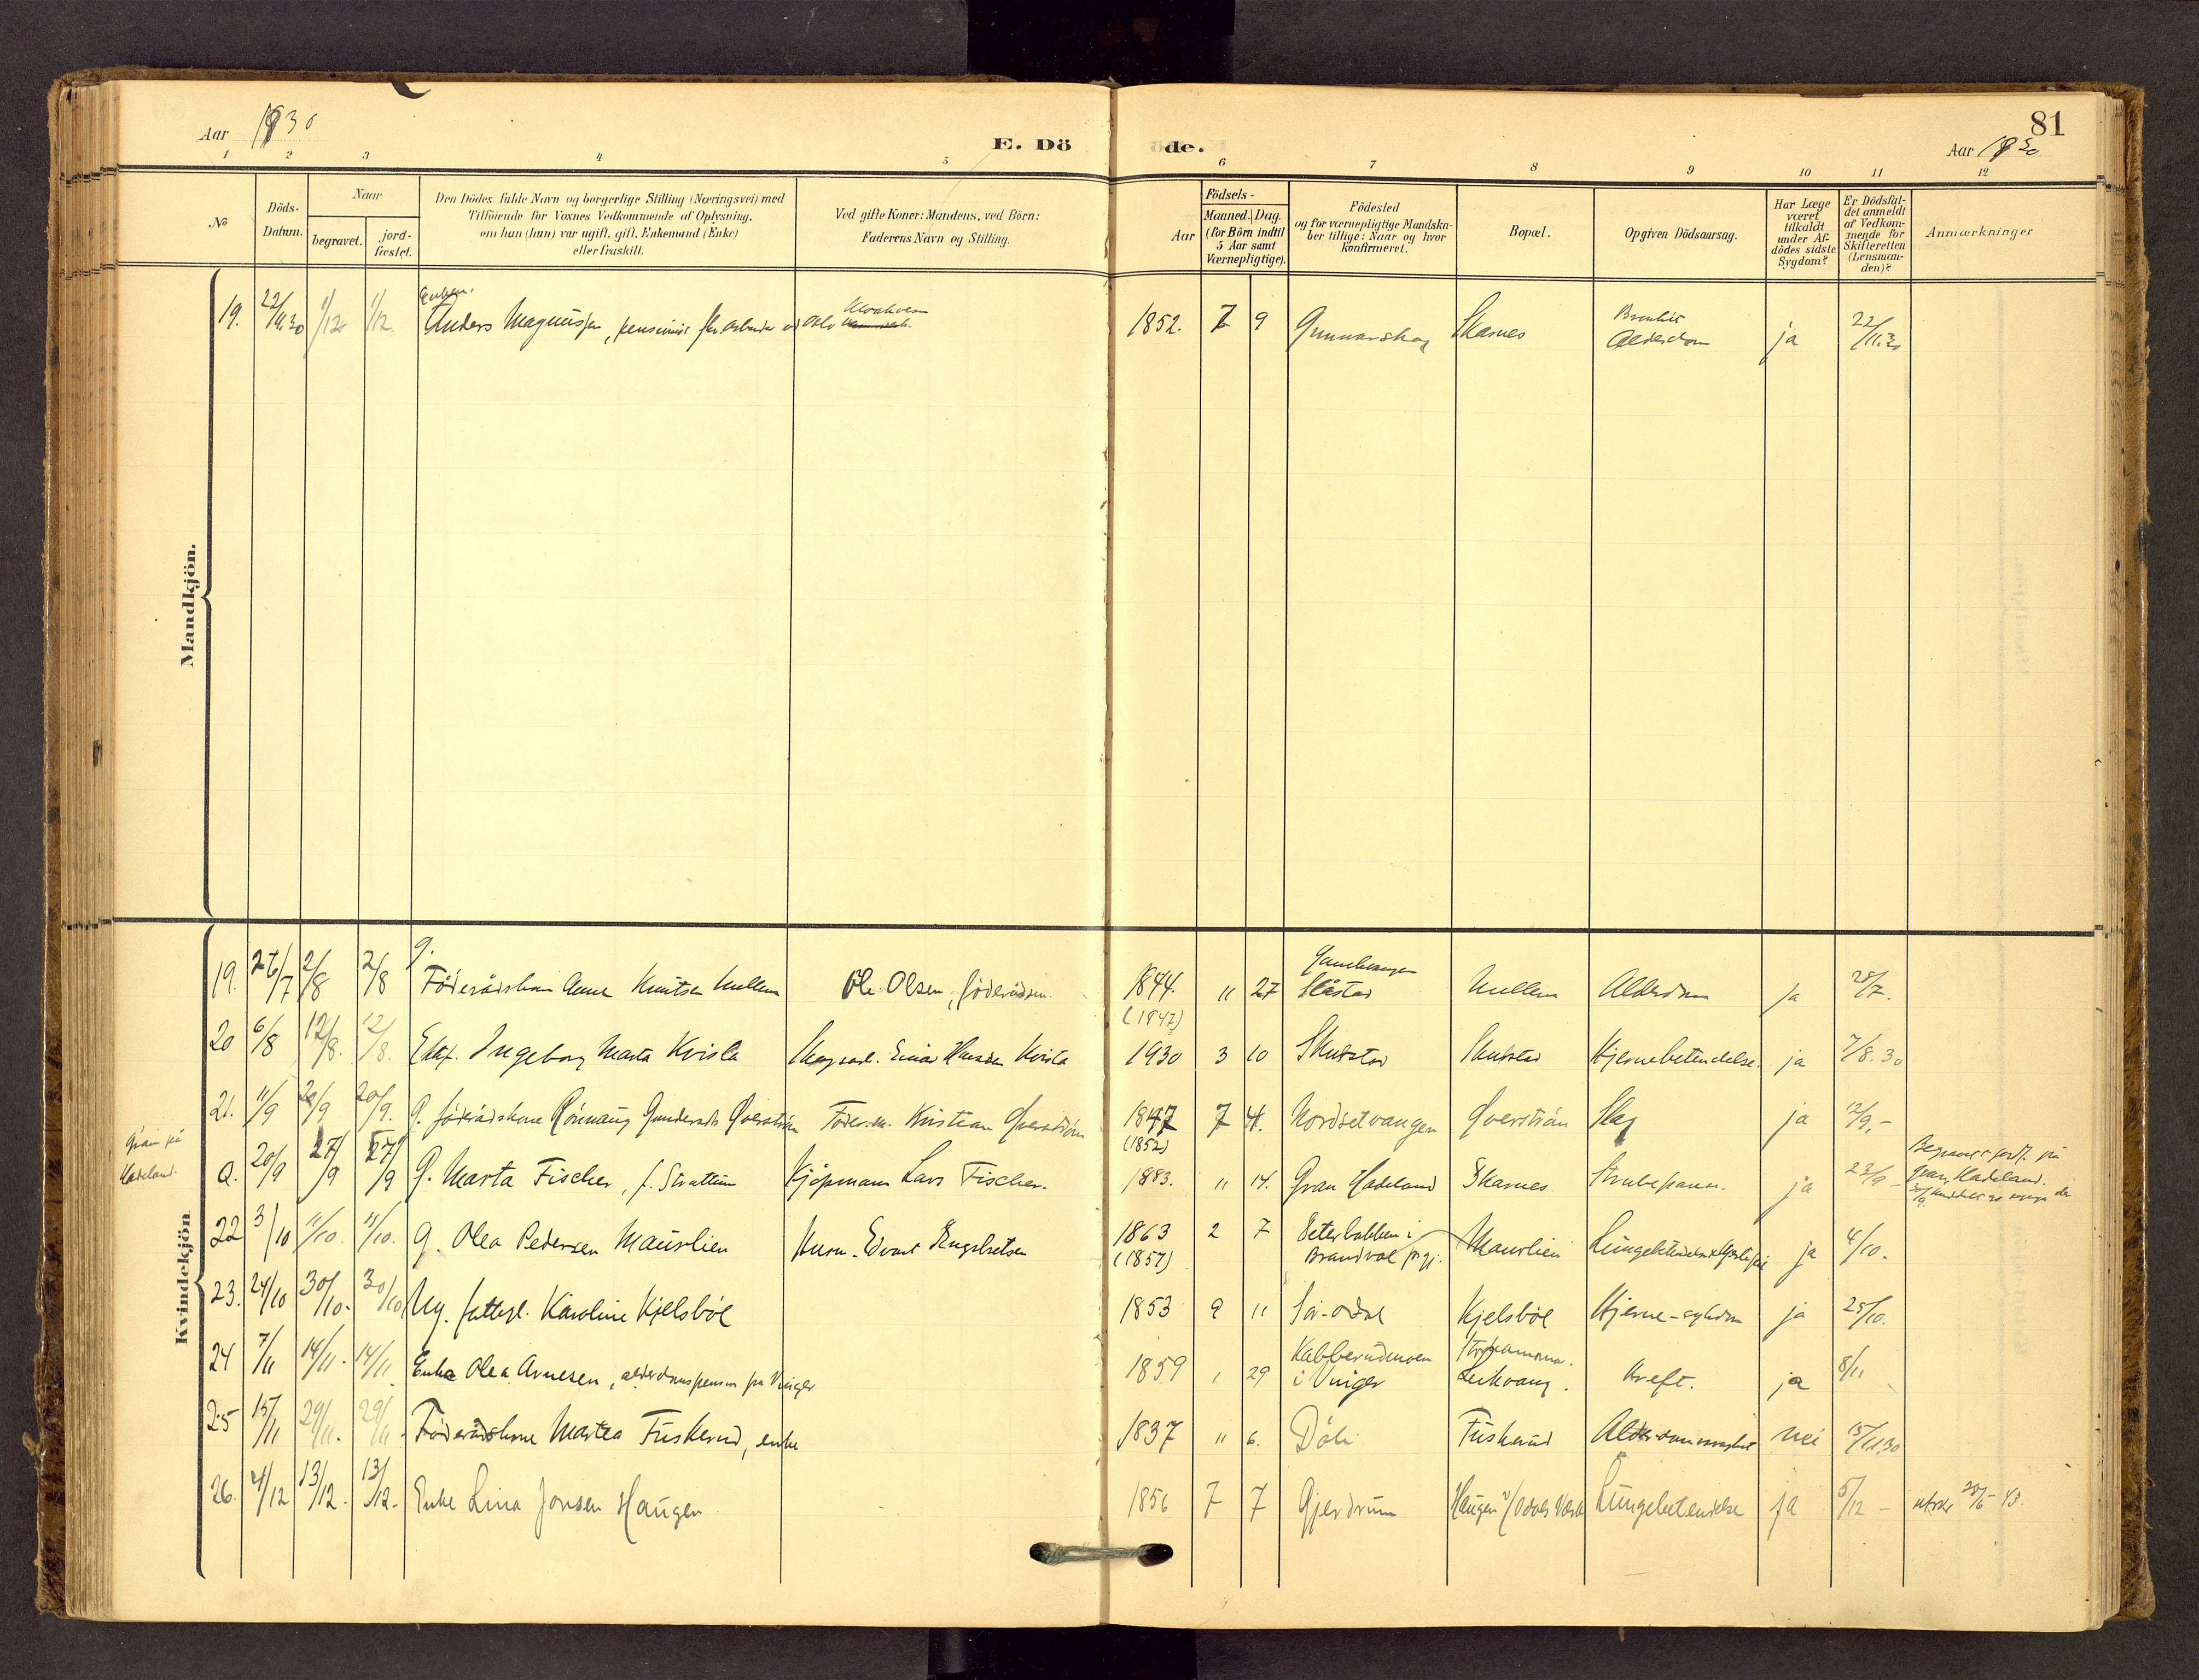 Aar 1930
E. Dö
1 2 3 4 5
№
Döds-
Datum.
Naar
begravet.
jord-
fæstet.
Den Dödes fulde Navn og borgerlige Stilling (Næringsvei) med
Tilföiende for Voxnes Vedkommende af Oplysning,
om han (hun) var ugift, gift, Enkemand (Enke)
eller fraskilt.
Ved gifte Koner: Mandens, ved Börn:
Faderens Navn og Stilling.
Mandkjön.
19. 22/11.30 1/12 1/12. Anders Magnussen, Oslo
Kvindekjön
19. 26/7 2/8 2/8 g. Föderådskone Anne Knutsen Mullem Ole Olsen, föderådsm.
20 6/8 12/8. 12/8. Ingeborg Marta Kvisla Einar Hansen Kvisla
21. 11/9 20/9 20/9. G. föderådskone Rönnaug Gundersdt. Qverstrøm Föder.m. Kristian Qverström
Gran på
Hadeland.
a. 20/9 27/9 27/9 G. Marta Fischer, f. Kjöpmann Lars Fischer.
22 3/10 11/10. 11/10. G. Olea Pedersen Maurlien Husm. Edvart Engelsetsen
23. 24/10 30/10. 30/10 Ug. Karoline Kjelsböl
24 7/11 14/11. 14/11 Enke Olea Arnesen, alderdomspensm. fra Vinger
25 15/11 29/11. 29/11 Föderådskone Martea Fuskerud, enke
26. 4/12 13/12. 13/12. Enke Lina Jonsen Haugen
81
de.
Aar 1930
6 7 8 9 10 11 12
Aar
Födsels-
Maaned. Dag.
(for Börn indtil
5 Aar samt
Værnepligtige).
Födested
og for værnepligtige Mandska-
ber tillige: Naar og hvor
konfirmeret.
Bopæl.
Opgiven Dödsaarsag.
Har Læge
været
tilkaldt
under Af-
dödes sidste
Sygdom?
Er Dödsfal-
det anmeldt
af Vedkom-
mende for
Skifteretten
(Lensman-
den)?
Anmærkninger
1852. 7 9 Gunnarskog Skarnes Alderdom ja 22/11.30
1844. 11 27 Slåstad Mullem Alderdom ja 28/7.
(1847)
1930 3 10 Skurstad Skurstad Hjernebetendelse. ja 7/8.30
1847 7 4. Nordsetvangen Qverström Slag ja 12/9.-
(1852)
1883. 11 14. Gran Hadeland Skarnes ja 23/9 -
Gran, Hadeland.
1863 2 7 Seterbakken i Maurlien ja 4/10.
(1857) Brandval
1853 9 11 Sör-odal Kjelsböl Hjerne-sykdom ja 25/10.
1859 1 29 Kabberudmoen
i Vinger Leikvang. Kreft. ja 8/11
1837 11 6. Döli Fuskerud nei 15/11.30
1856 7 7 Gjerdrum Haugen v/ Odals Verk Lungebetendelse ja 5/12 - 25/6-43.